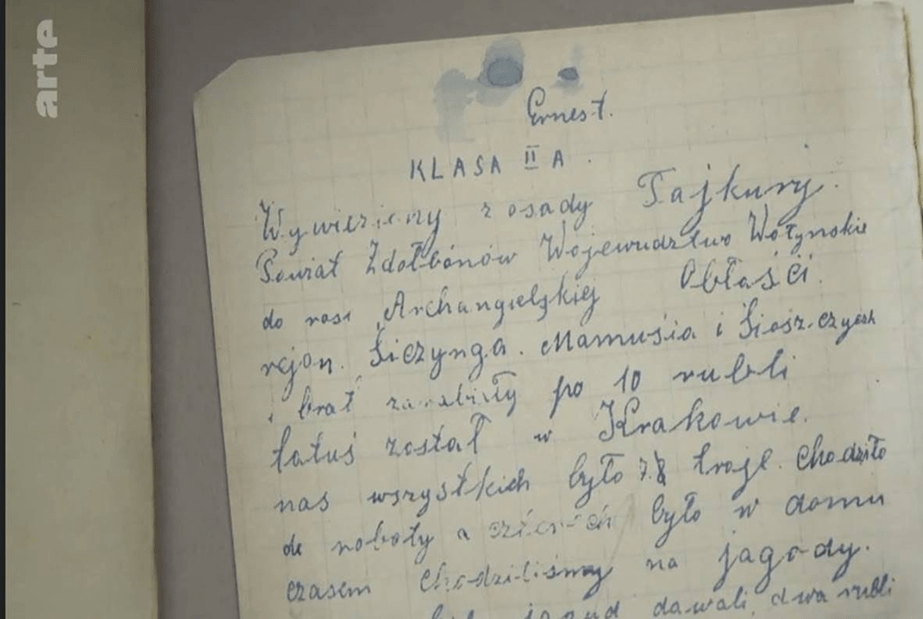 arte
Ernest.
KLASA II A.
Wywieziony z osady Tajkury.
Powiat Zdołbónów Wojewudztwo Wołynskie
do rosi Archangielskiej Obłaści.
rejon. Siczynga. Mamusia i
i brat zarabiały po 10 rubli
tatuś został w Krakowie.
nas wszystkich było troje. chodziło
do roboty a było w domu
czasem chodziliśmy na jagody.
jagud dawali dwa rubli